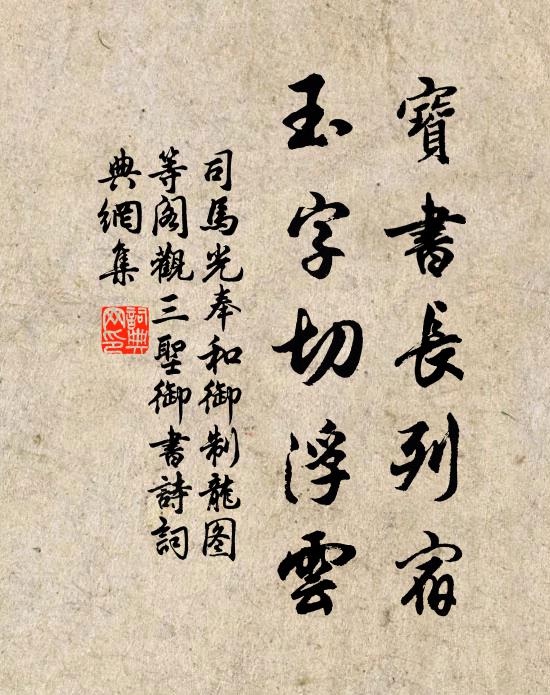 寶書長列宿
玉字切浮雲
司馬光奉和御制龍图
等阁觀三聖御书詩詞
典網集
詞典網印